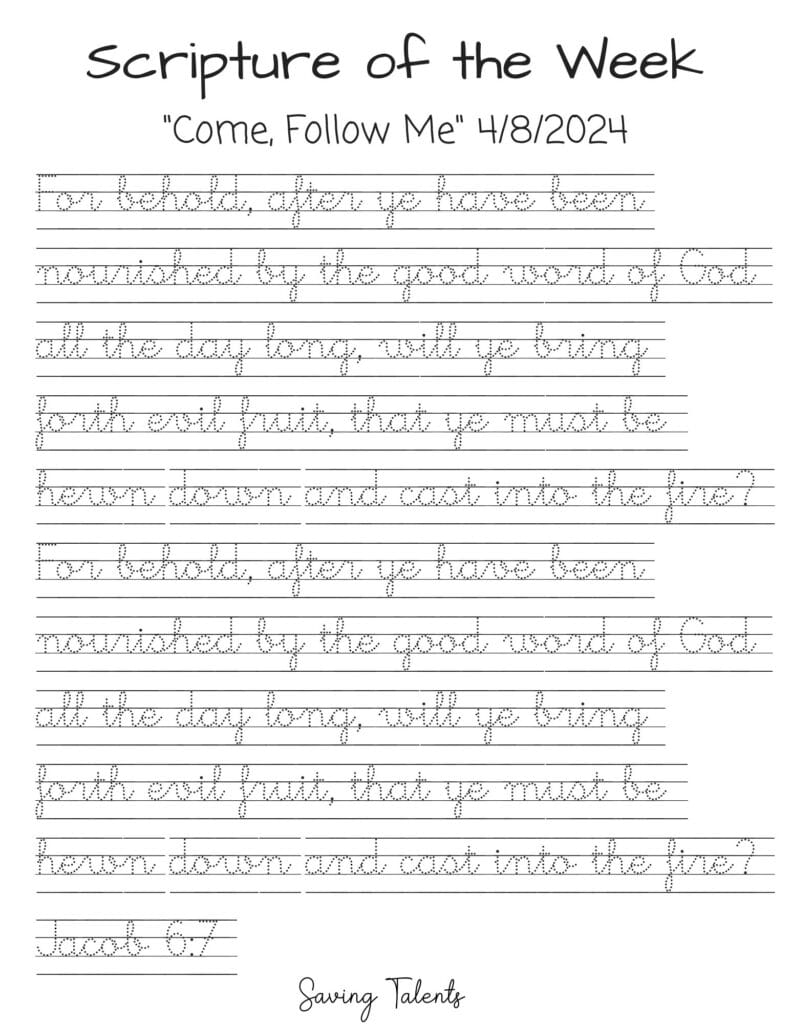 Scripture of the Week
"Come, Follow Me" 4/8/2024
For behold, after ye have been
nourished by the good word of God
all the day long, will ye bring
forth evil fruit, that ye must be
hewn down and cast into the fire?
For behold, after ye have been
nourished by the good word of God
all the day long, will ye bring
forth evil fruit, that ye must be
hewn down and cast into the fire?
Jacob 6:7
Saving Talents